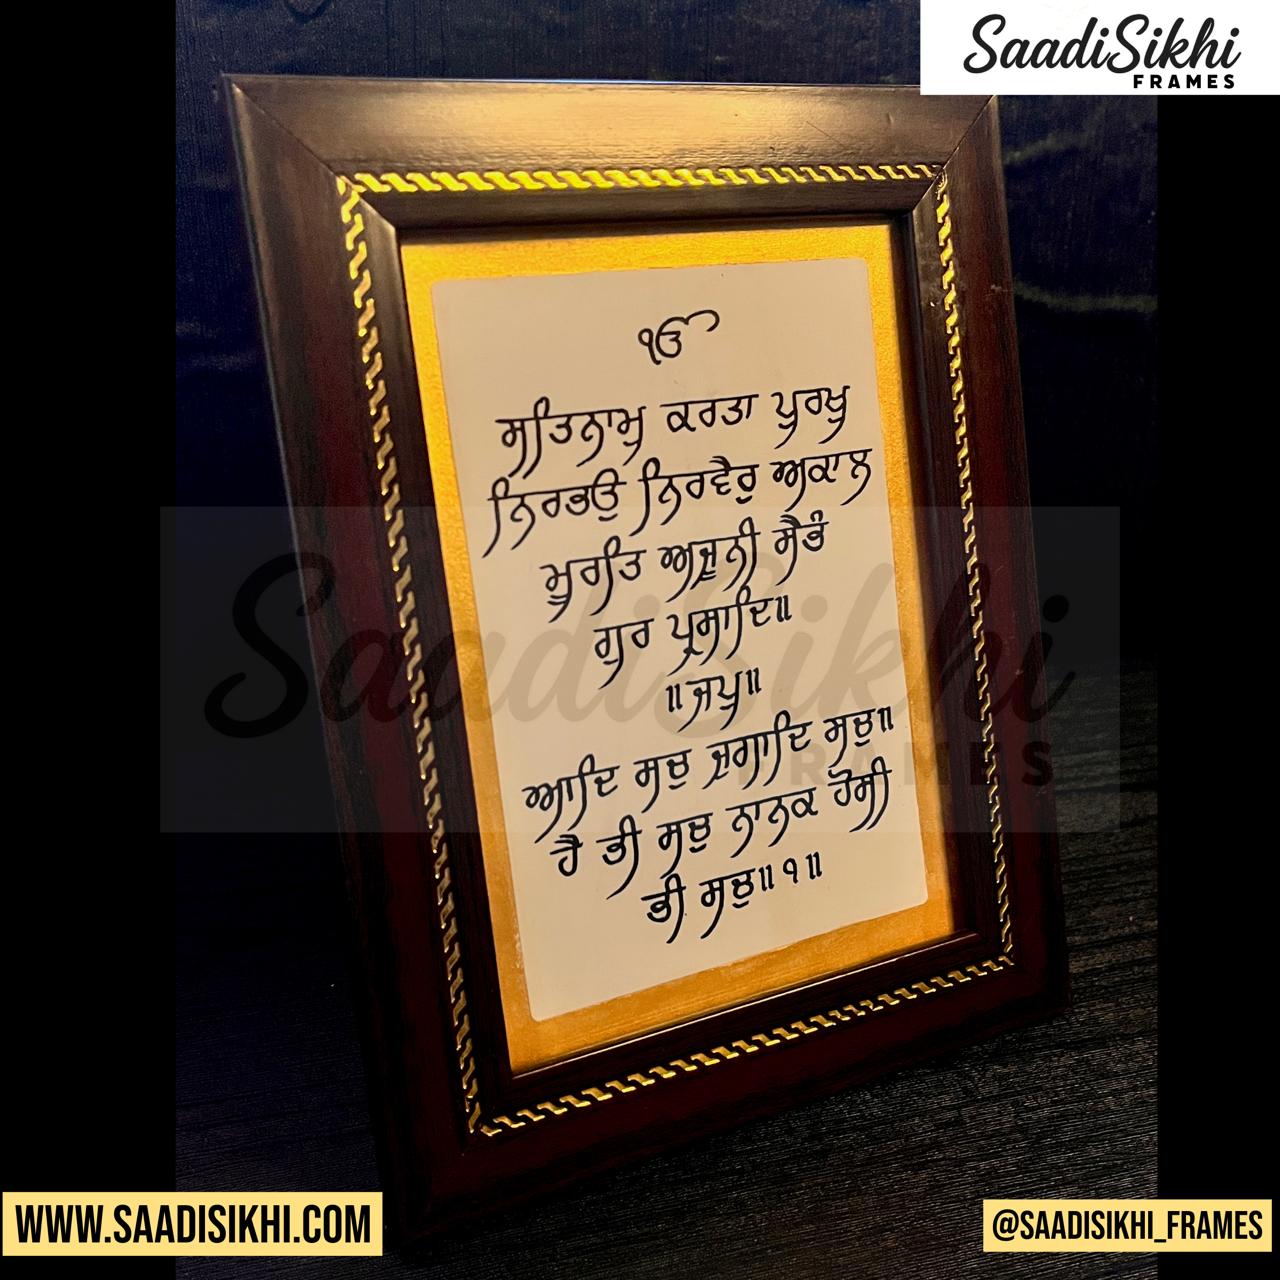 SaadiSikhi
FRAMES
ੴ
ਸਤਿਨਾਮੁ ਕਰਤਾ ਪੁਰਖੁ
ਨਿਰਭਉ ਨਿਰਵੈਰੁ ਅਕਾਲ
ਮੂਰਤਿ ਅਜੂਨੀ ਸੈਭੰ
ਗੁਰ ਪ੍ਰਸਾਦਿ॥
॥ਜਪੁ॥
ਆਦਿ ਸਚੁ ਜੁਗਾਦਿ ਸਚੁ॥
ਹੈ ਭੀ ਸਚੁ ਨਾਨਕ ਹੋਸੀ
ਭੀ ਸਚੁ॥੧॥
SaadiSikhi
FRAMES
WWW.SAADISIKHI.COM
@SAADISIKHI_FRAMES